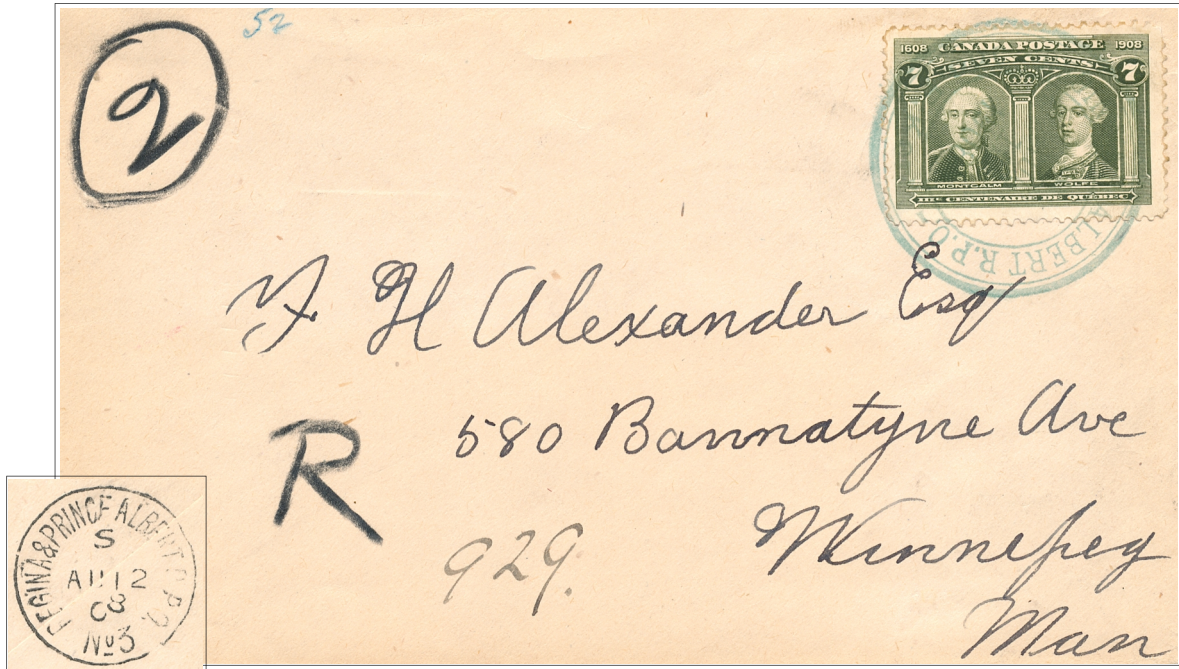 52
2
1608 CANADA POSTAGE 1908
7 SEVEN CENTS 7
MONTCALM WOLFE
IIIE CENTENAIRE DE QUÉBEC
ALBERT R.P.O
F H Alexander Esq
580 Bannatyne Ave
R
Winnepeg
929.
Man
REGINA & PRINCE ALBERT R.P.O.
S
AU 12
08
No 3